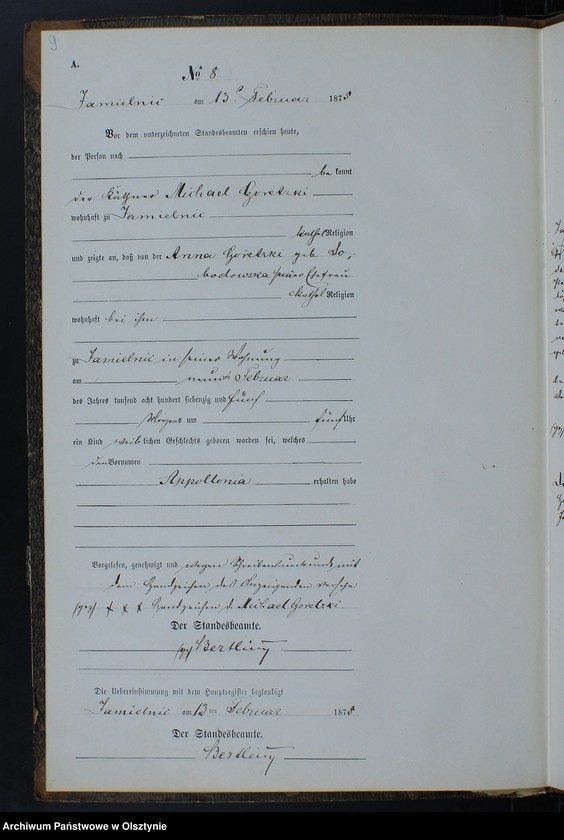 9
A.
No 8
Jamielnic am 13n Februar 1875
Vor dem unterzeichneten Standesbeamten erschien heute,
der Person nach
be kannt
der Käthner Michael Goretzki
wohnhaft zu Jamielnic
kathol Religion
und zeigte an, daß von der Anna Goretzki geb Lo,
bodowska seiner Ehefrau
kathol Religion
wohnhaft bei ihm
zu Jamielnic in seiner Wohnung
am neunten Februar
des Jahres tausend acht hundert siebenzig und fünf
Morgens um fünf Uhr
ein Kind weib lichen Geschlechts geboren worden sei, welches
den Vornamen
Appollonia erhalten habe
Vorgelesen, genehmigt und wegen Schreibensunkunde mit
dem Handzeichen des Anzeigenden versehn
(gez) + x x Handzeichen d. Michael Goretzki.
Der Standesbeamte.
(gez) Bertling
Die Uebereinstimmung mit dem Hauptregister beglaubigt
Jamielnic am 13ten Februar 1875
Der Standesbeamte.
Bertling
Archiwum Państwowe w Olsztynie